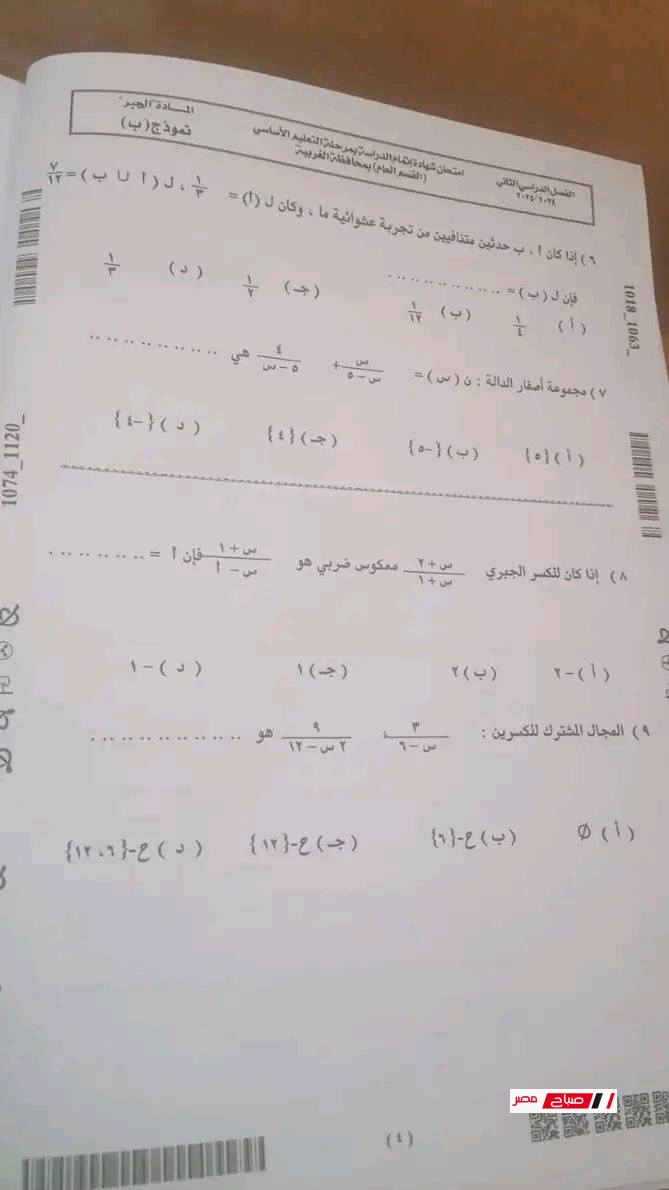 المادة "الجبر"
نموذج (ب)
امتحان شهادة إتمام الدراسة بمرحلة التعليم الأساسي
(القسم العام) بمحافظة الغربية
الفصل الدراسي الثاني
٢٠٢٥/٢٠٢٤
٦) إذا كان أ ، ب حدثين متنافيين من تجربة عشوائية ما ، وكان ل (أ) = ١/٣ ، ل (أ ∪ ب) = ٧/١٢
فإن ل (ب) = ..............
(أ) ١/٤ (ب) ١/١٢ (جـ) ١/٢ (د) ١/٣
٧) مجموعة أصفار الدالة : ن (س) = س/(س-٥) + ٤/(٥-س) هي ..............
(أ) {٥} (ب) {-٥} (جـ) {٤} (د) {-٤}
٨) إذا كان للكسر الجبري (س+٢)/(س+١) معكوس ضربي هو (س+١)/(س-أ) فإن أ = ..........
(أ) -٢ (ب) ٢ (جـ) ١ (د) -١
٩) المجال المشترك للكسرين : ٣/(س-٦) ، ٩/(٢س-١٢) هو ..............
(أ) Ø (ب) ح-{٦} (جـ) ح-{١٢} (د) ح-{٦، ١٢}
1018_1063_
1074_1120_
صباح مصر
(٤)